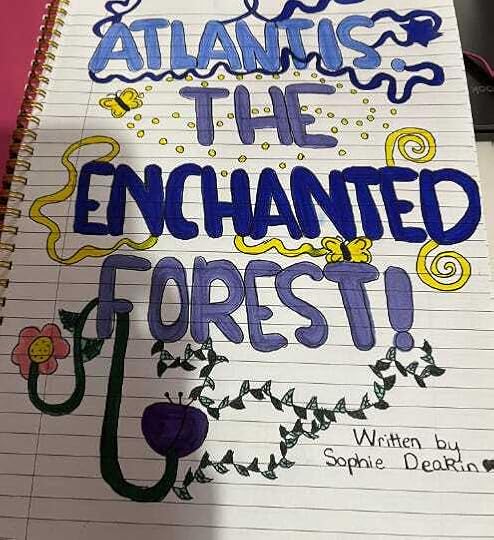 ATLANTIS.
THE
ENCHANTED
FOREST!
Written by
Sophie Deakin